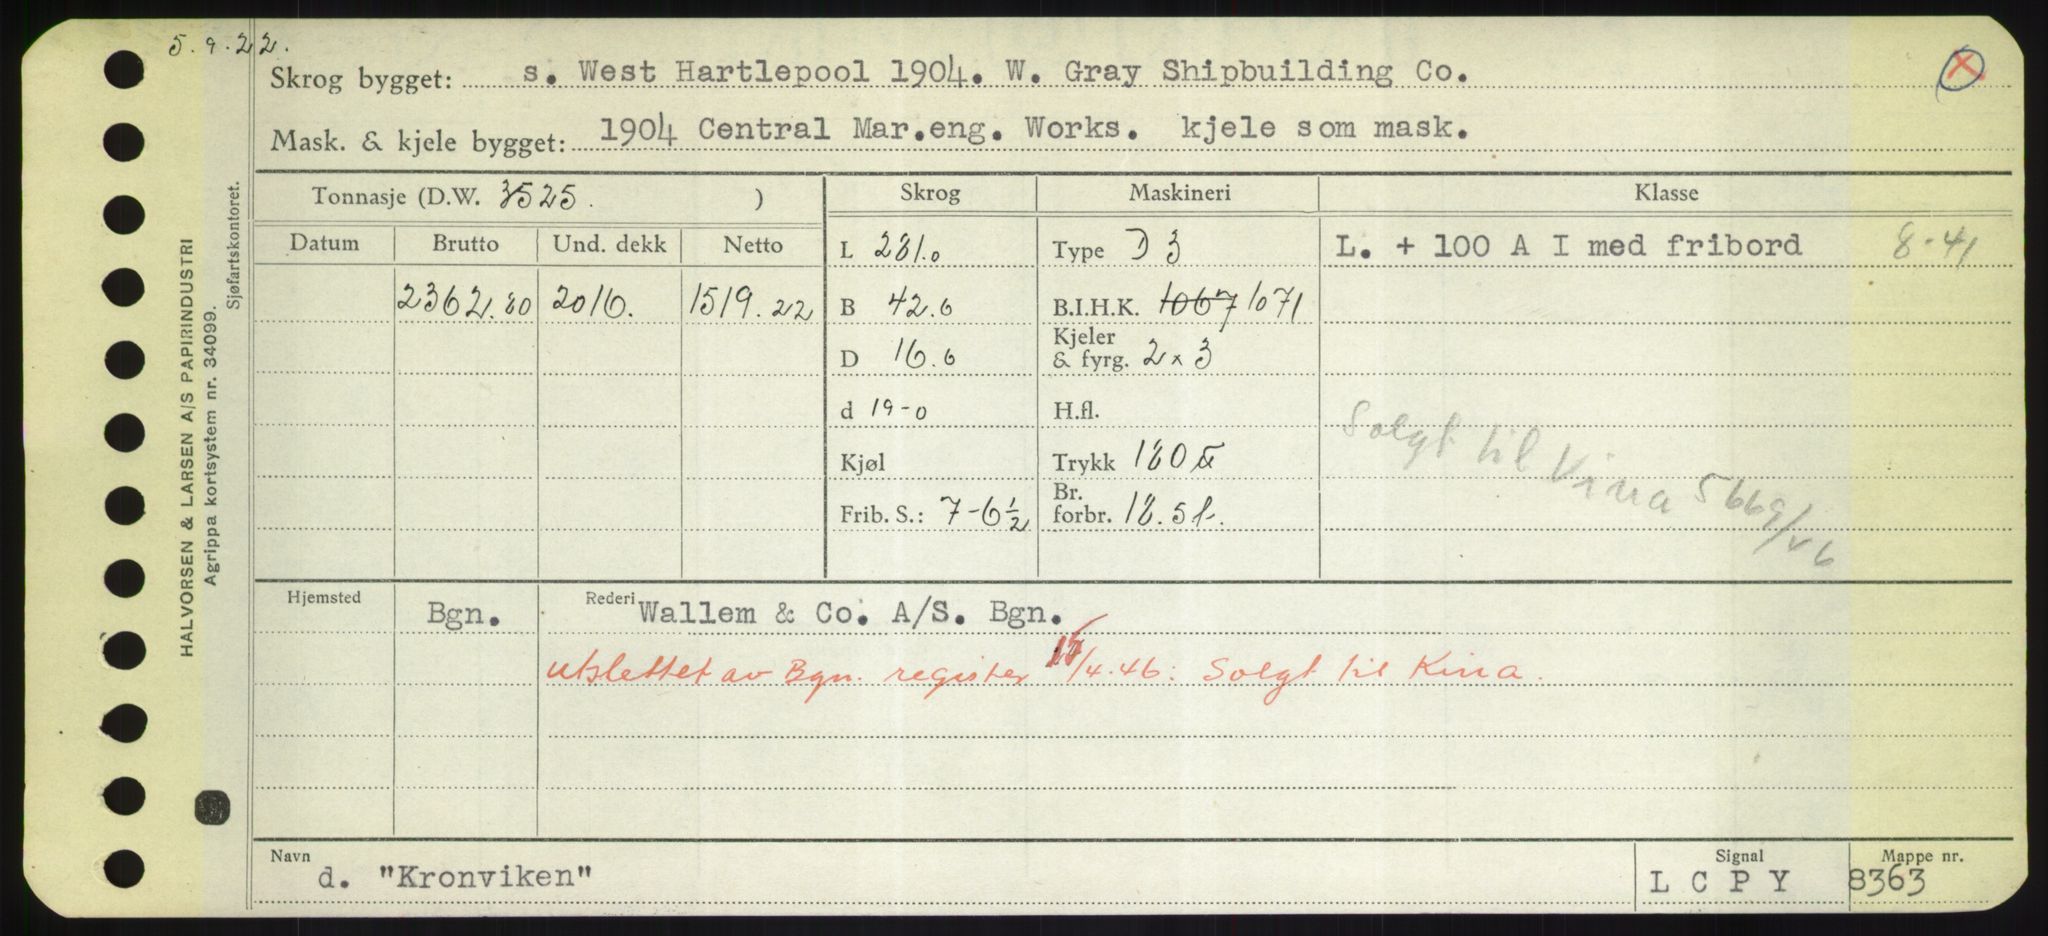 5.9.22.
Skrog bygget: s. West Hartlepool 1904. W. Gray Shipbuilding Co. X
Mask. & kjele bygget: 1904 Central Mar.eng. Works. kjele som mask.
Tonnasje (D.W. 3525. ) Skrog Maskineri Klasse
Datum Brutto Und. dekk Netto L 281.0 Type D 3 L. + 100 A I med fribord 8-41
2362.80 2016. 1519.22 B 42.6 B.I.H.K. 1067 1071
D 16.6 Kjeler & fyrg. 2 x 3
d 19-0 H.fl.
Solgt til Kina 5669/46
Kjøl Trykk 180
Frib. S.: 7-6½ Br. forbr. 18.5 t.
Hjemsted Bgn. Rederi Wallem & Co. A/S. Bgn.
utslettet av Bgn. register /4.46: Solgt til Kina.
Navn d. "Kronviken" Signal L C P Y Mappe nr. 8363
HALVORSEN & LARSEN A/S PAPIRINDUSTRI
Agrippa kortsystem nr. 34099.
Sjøfartskontoret.